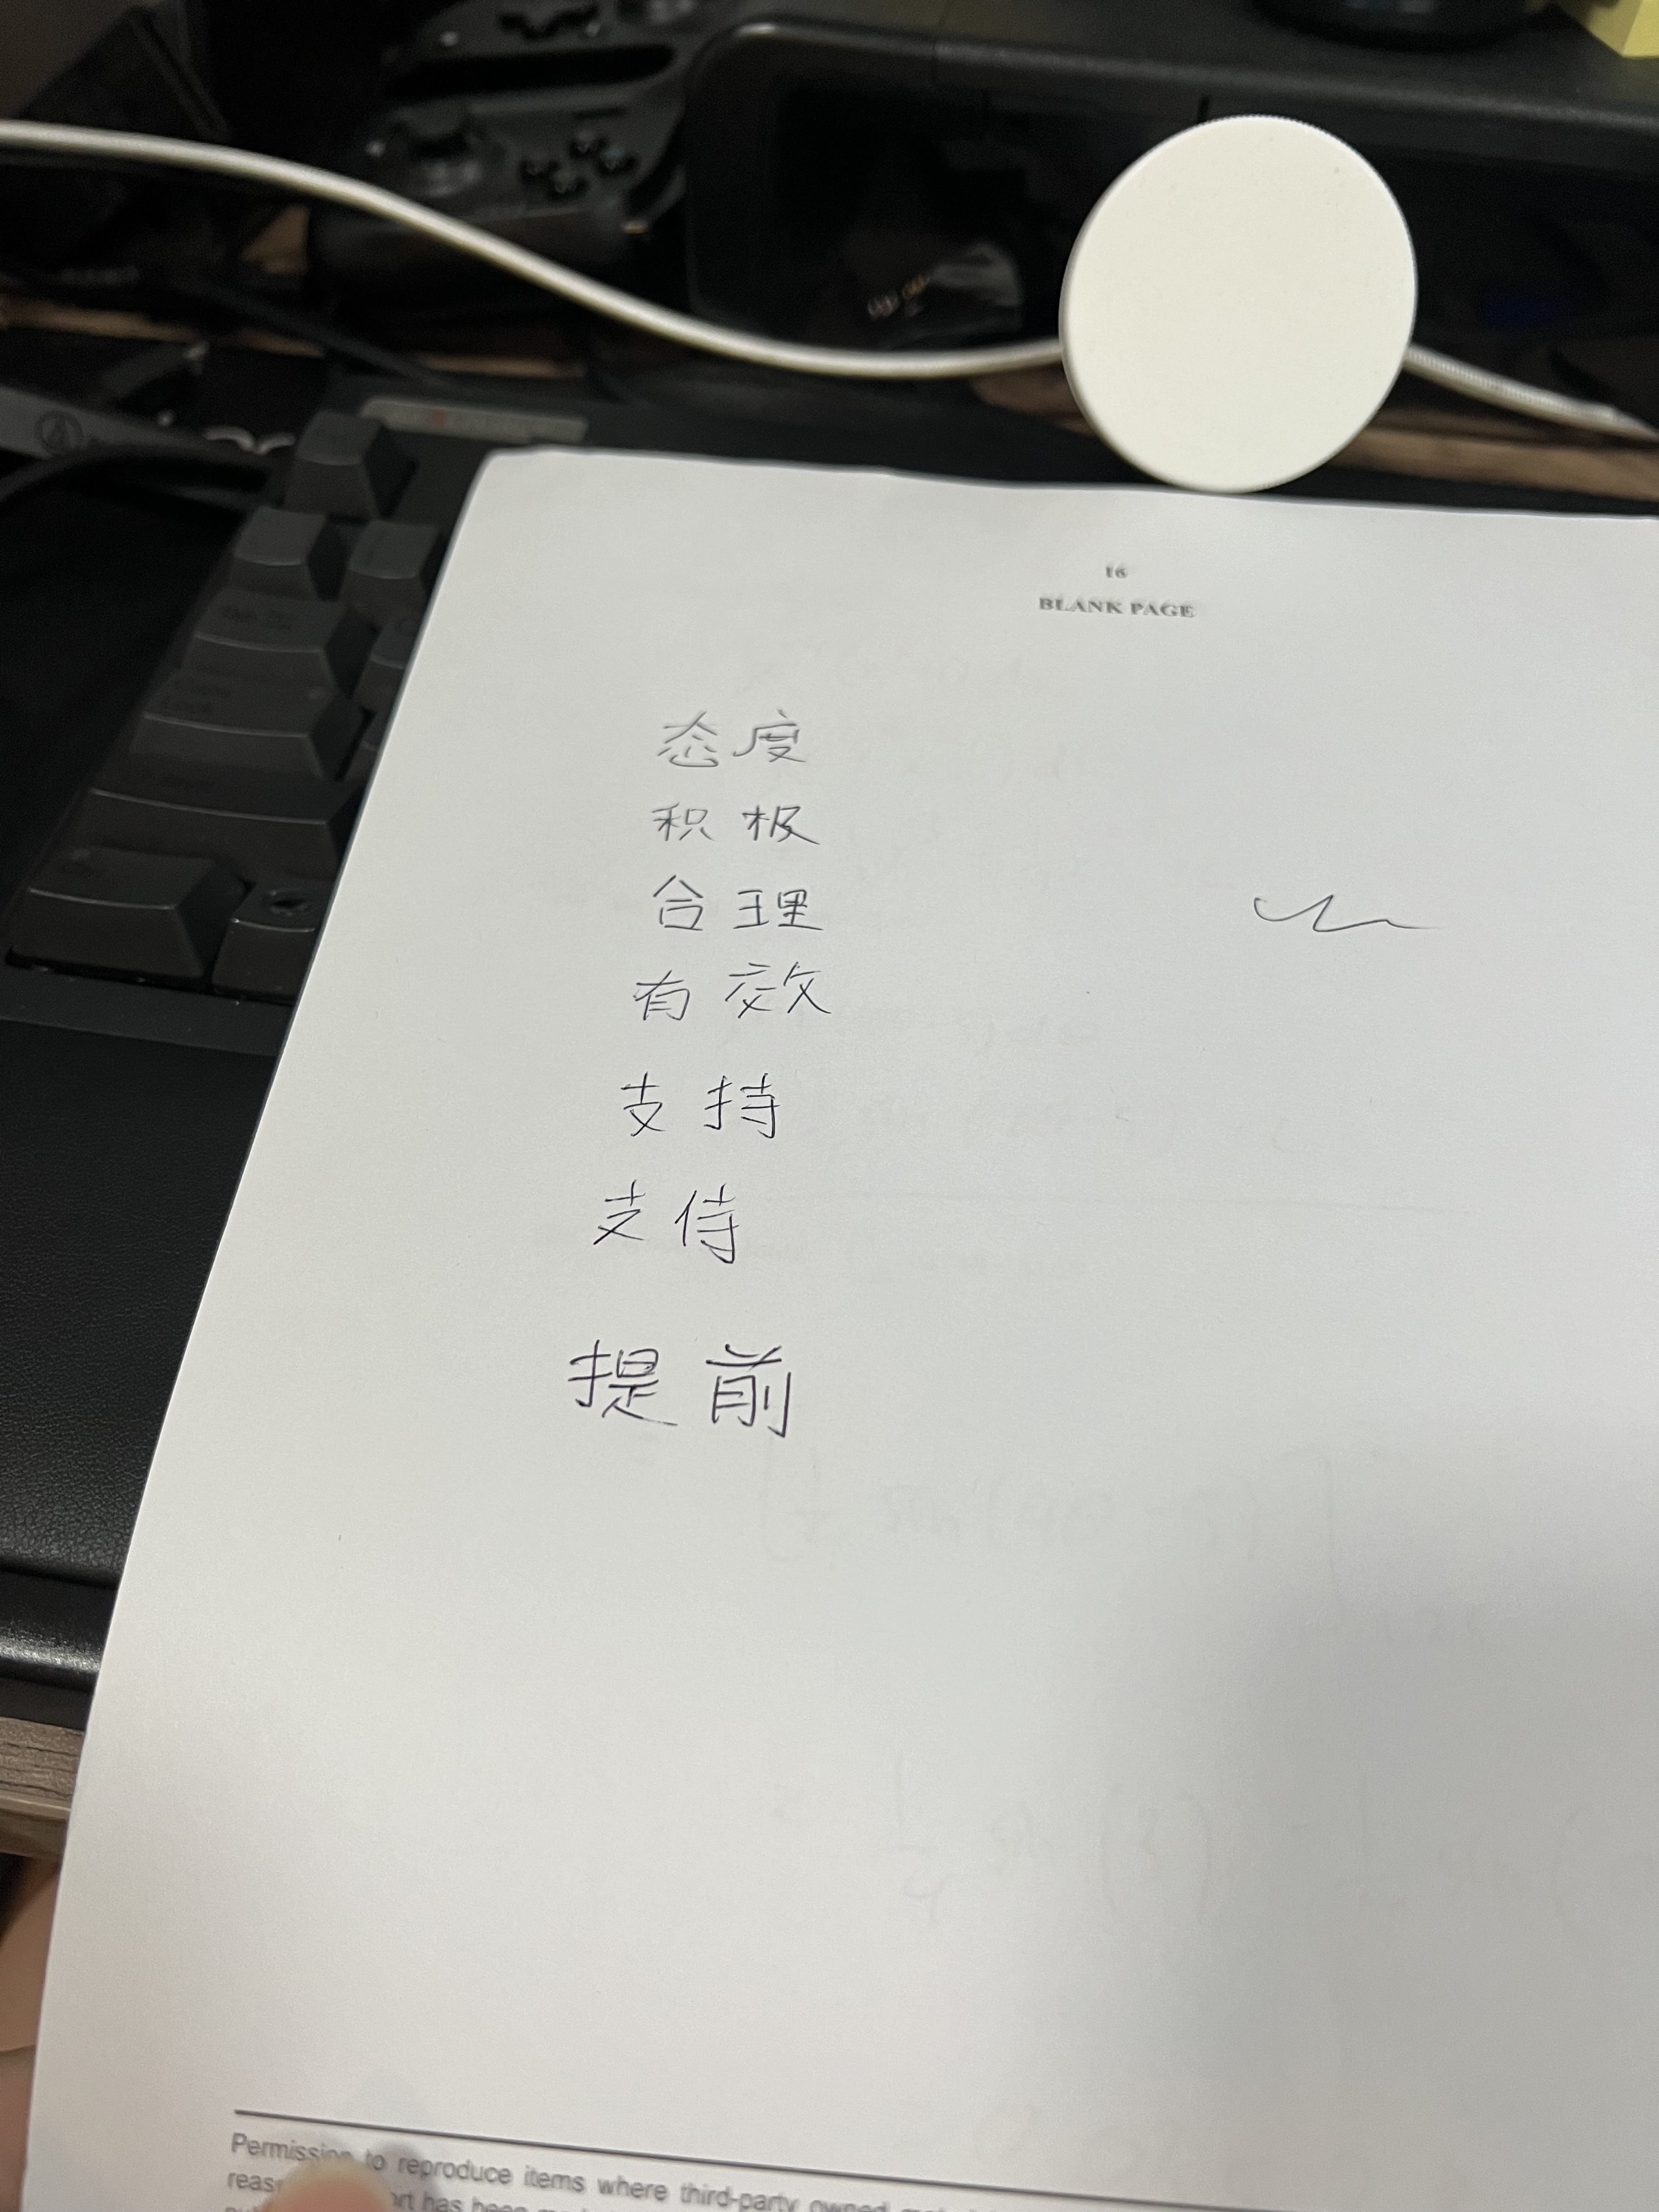 16
BLANK PAGE
态度
积极
合理
有效
支持
支侍
提前
Permission to reproduce items where third-party owned